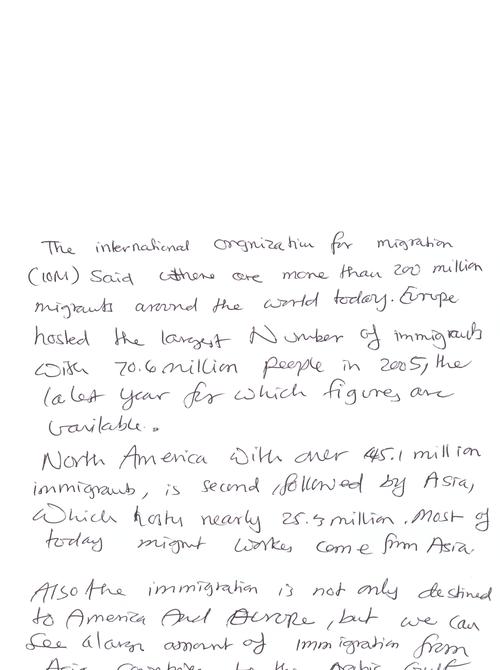 The international orgnization for migration
(IOM) Said there are more than 200 million
migrants around the world today. Europe
hosted the largest Number of immigrants
With 70.6 million people in 2005, the
latest year for which figures are
vailable.
North America With over 45.1 million
immigrants, is second, followed by Asia,
Which hosts nearly 25.3 million. Most of
today migrnt workes come from Asia.
Also the immigration is not only destined
to America And Europe, but we can
See a large amount of Immigration from
Asia to the Arabic Gulf